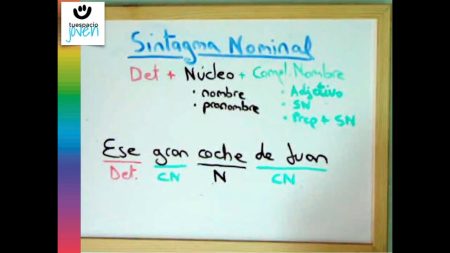 tuespacio
joven
Sintagma Nominal
Det + Núcleo + Compl. Nombre
• nombre
• pronombre
• Adjetivo
• SN
• Prep + SN
Ese gran coche de Juan
Det. CN N CN